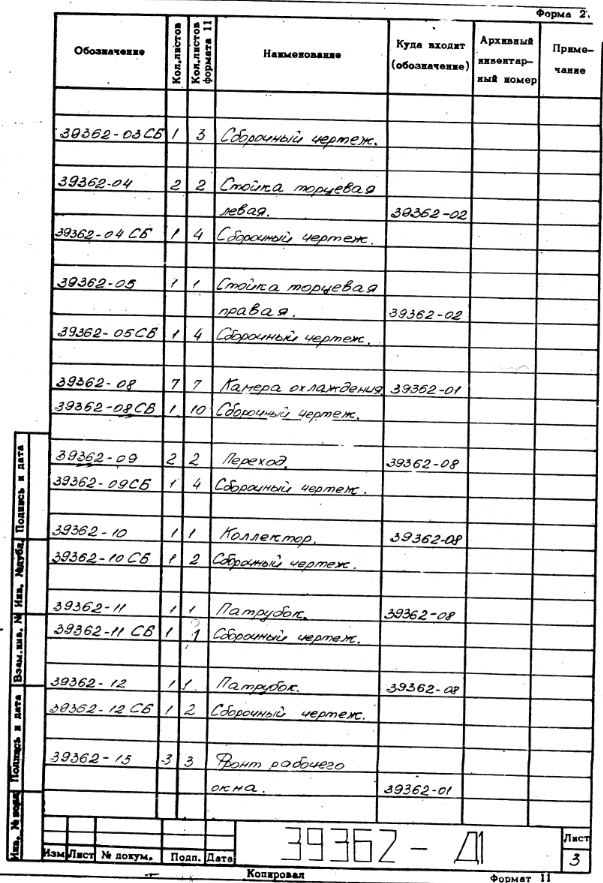 Форма 2.
Обозначение Кол.листов Кол.листов формата 11 Наименование Куда входит (обозначение) Архивный инвентарный номер Примечание
39362-03СБ 1 3 Сборочный чертеж.
39362-04 2 2 Стойка торцевая
левая. 39362-02
39362-04 СБ 1 4 Сборочный чертеж.
39362-05 1 1 Стойка торцевая
правая. 39362-02
39362-05СБ 1 4 Сборочный чертеж.
39362-08 7 7 Камера охлаждения 39362-01
39362-08СБ 1 10 Сборочный чертеж.
39362-09 2 2 Переход. 39362-08
39362-09СБ 1 4 Сборочный чертеж.
39362-10 1 1 Коллектор. 39362-08
39362-10 СБ 1 2 Сборочный чертеж.
39362-11 1 1 Патрубок. 39362-08
39362-11 СБ 1 1 Сборочный чертеж.
39362-12 1 1 Патрубок. 39362-08
39362-12 СБ 1 2 Сборочный чертеж.
39362-15 3 3 Фронт рабочего
окна. 39362-01
Инв. № подл. Подпись и дата Взам.инв. № Инв. №дубл. Подпись и дата
39362 - Д1
Лист
3
Изм Лист № докум. Подп. Дата
Копировал Формат 11